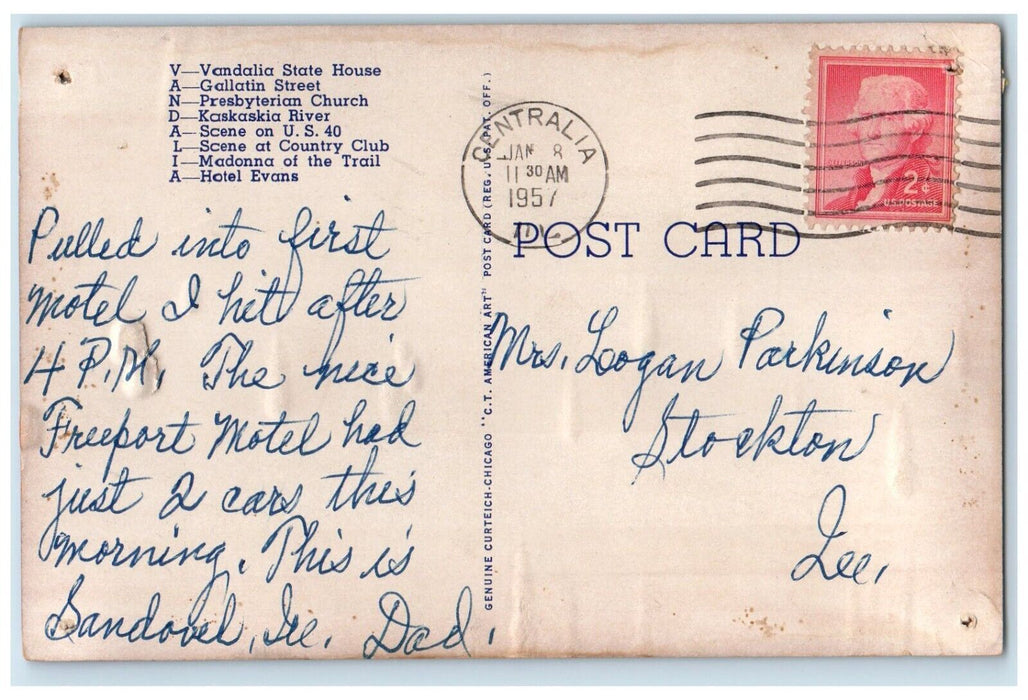 V—Vandalia State House
A—Gallatin Street
N—Presbyterian Church
D—Kaskaskia River
A—Scene on U. S. 40
L—Scene at Country Club
I—Madonna of the Trail
A—Hotel Evans
Pulled into first
motel I hit after
4 P.M. The nice
Freeport Motel had
just 2 cars this
morning. This is
Sandovel, Ill. Dad.
GENUINE CURTEICH-CHICAGO "C.T. AMERICAN ART" POST CARD (REG. U.S. PAT. OFF.)
CENTRALIA
JAN 8
11 30 AM
1957
ILL.
2¢
U.S. POSTAGE
POST CARD
Mrs. Logan Parkinson
Stockton
Ill.